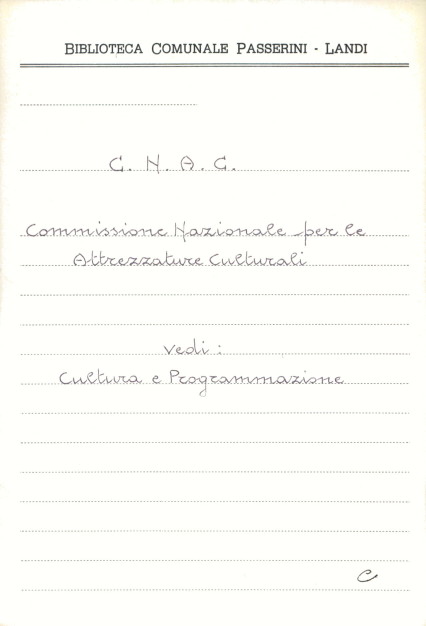 BIBLIOTECA COMUNALE PASSERINI - LANDI
C. N. A. C.
Commissione Nazionale per le
Attrezzature Culturali
vedi :
Cultura e Programmazione
C